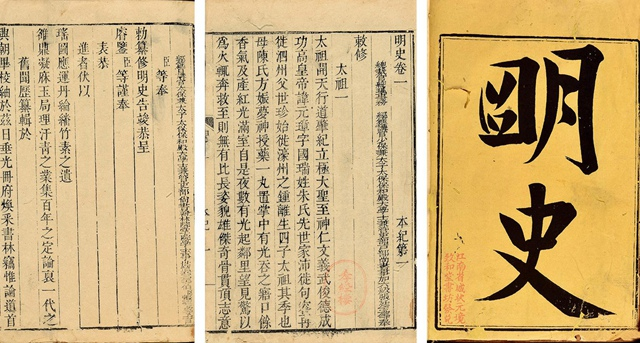 明史
明史卷一 本紀第一
敕修
太祖一
太祖開天行道肇紀立極大聖至神仁文義武俊德成
功高皇帝諱元璋字國瑞姓朱氏先世家沛徙句容再
徙泗州父世珍始徙濠州之鍾離生四子太祖其季也
母陳氏方娠夢神授藥一丸置掌中有光吞之寤口餘
香氣及產紅光滿室自是夜數有光起鄰里望見驚以
為火輒奔救至則無有比長姿貌雄傑奇骨貫頂志意
臣等奉
勅纂修明史告竣恭呈
御鑒臣等謹奉
表恭
進者伏以
瑤圖應運丹綸繙竹素之遺
雒鼎凝庥玉局理汗青之業集百年之定論裒一代之
舊聞歷纂輯於
興朝畢校紬於茲日垂光冊府煥采書林竊惟論道首